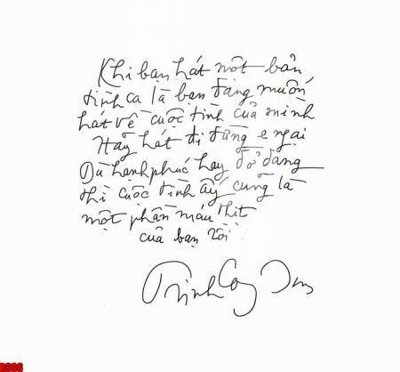 Khi bạn hát một bản
tình ca là bạn đang muốn
hát về cuộc tình của mình
Hãy hát đi đừng e ngại
Dù hạnh phúc hay dở dang
thì cuộc tình ấy cũng là
một phần máu thịt
của bạn rồi
Trịnh Công Sơn